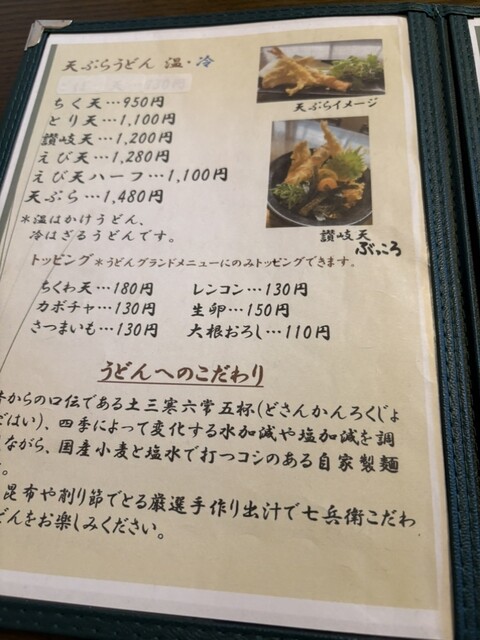 天ぷらうどん 温・冷
ちく天…950円
とり天…1,100円
讃岐天…1,200円
えび天…1,280円
えび天ハーフ…1,100円
天ぷら…1,480円
＊温はかけうどん、
冷はざるうどんです。
天ぷらイメージ
讃岐天
ぶっころ
トッピング＊うどんグランドメニューにのみトッピングできます。
ちくわ天…180円 レンコン…130円
カボチャ…130円 生卵…150円
さつまいも…130円 大根おろし…110円
うどんへのこだわり
からの口伝である土三寒六常五杯(どさんかんろくじょ
ごはい)、四季によって変化する水加減や塩加減を調
ながら、国産小麦と塩水で打つコシのある自家製麺
。
昆布や削り節でとる厳選手作り出汁で七兵衛こだわ
どんをお楽しみください。